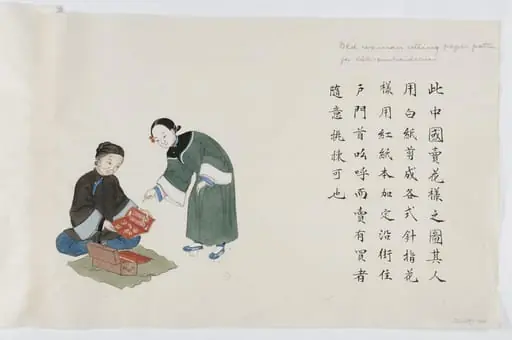 Old woman selling paper patte
for silk embroideries
此中國賣花樣之圖其人
用白紙剪成各式針指花
樣用紅紙本加定沿街住
戶門首吆呼而賣有買者
隨意挑揀可也